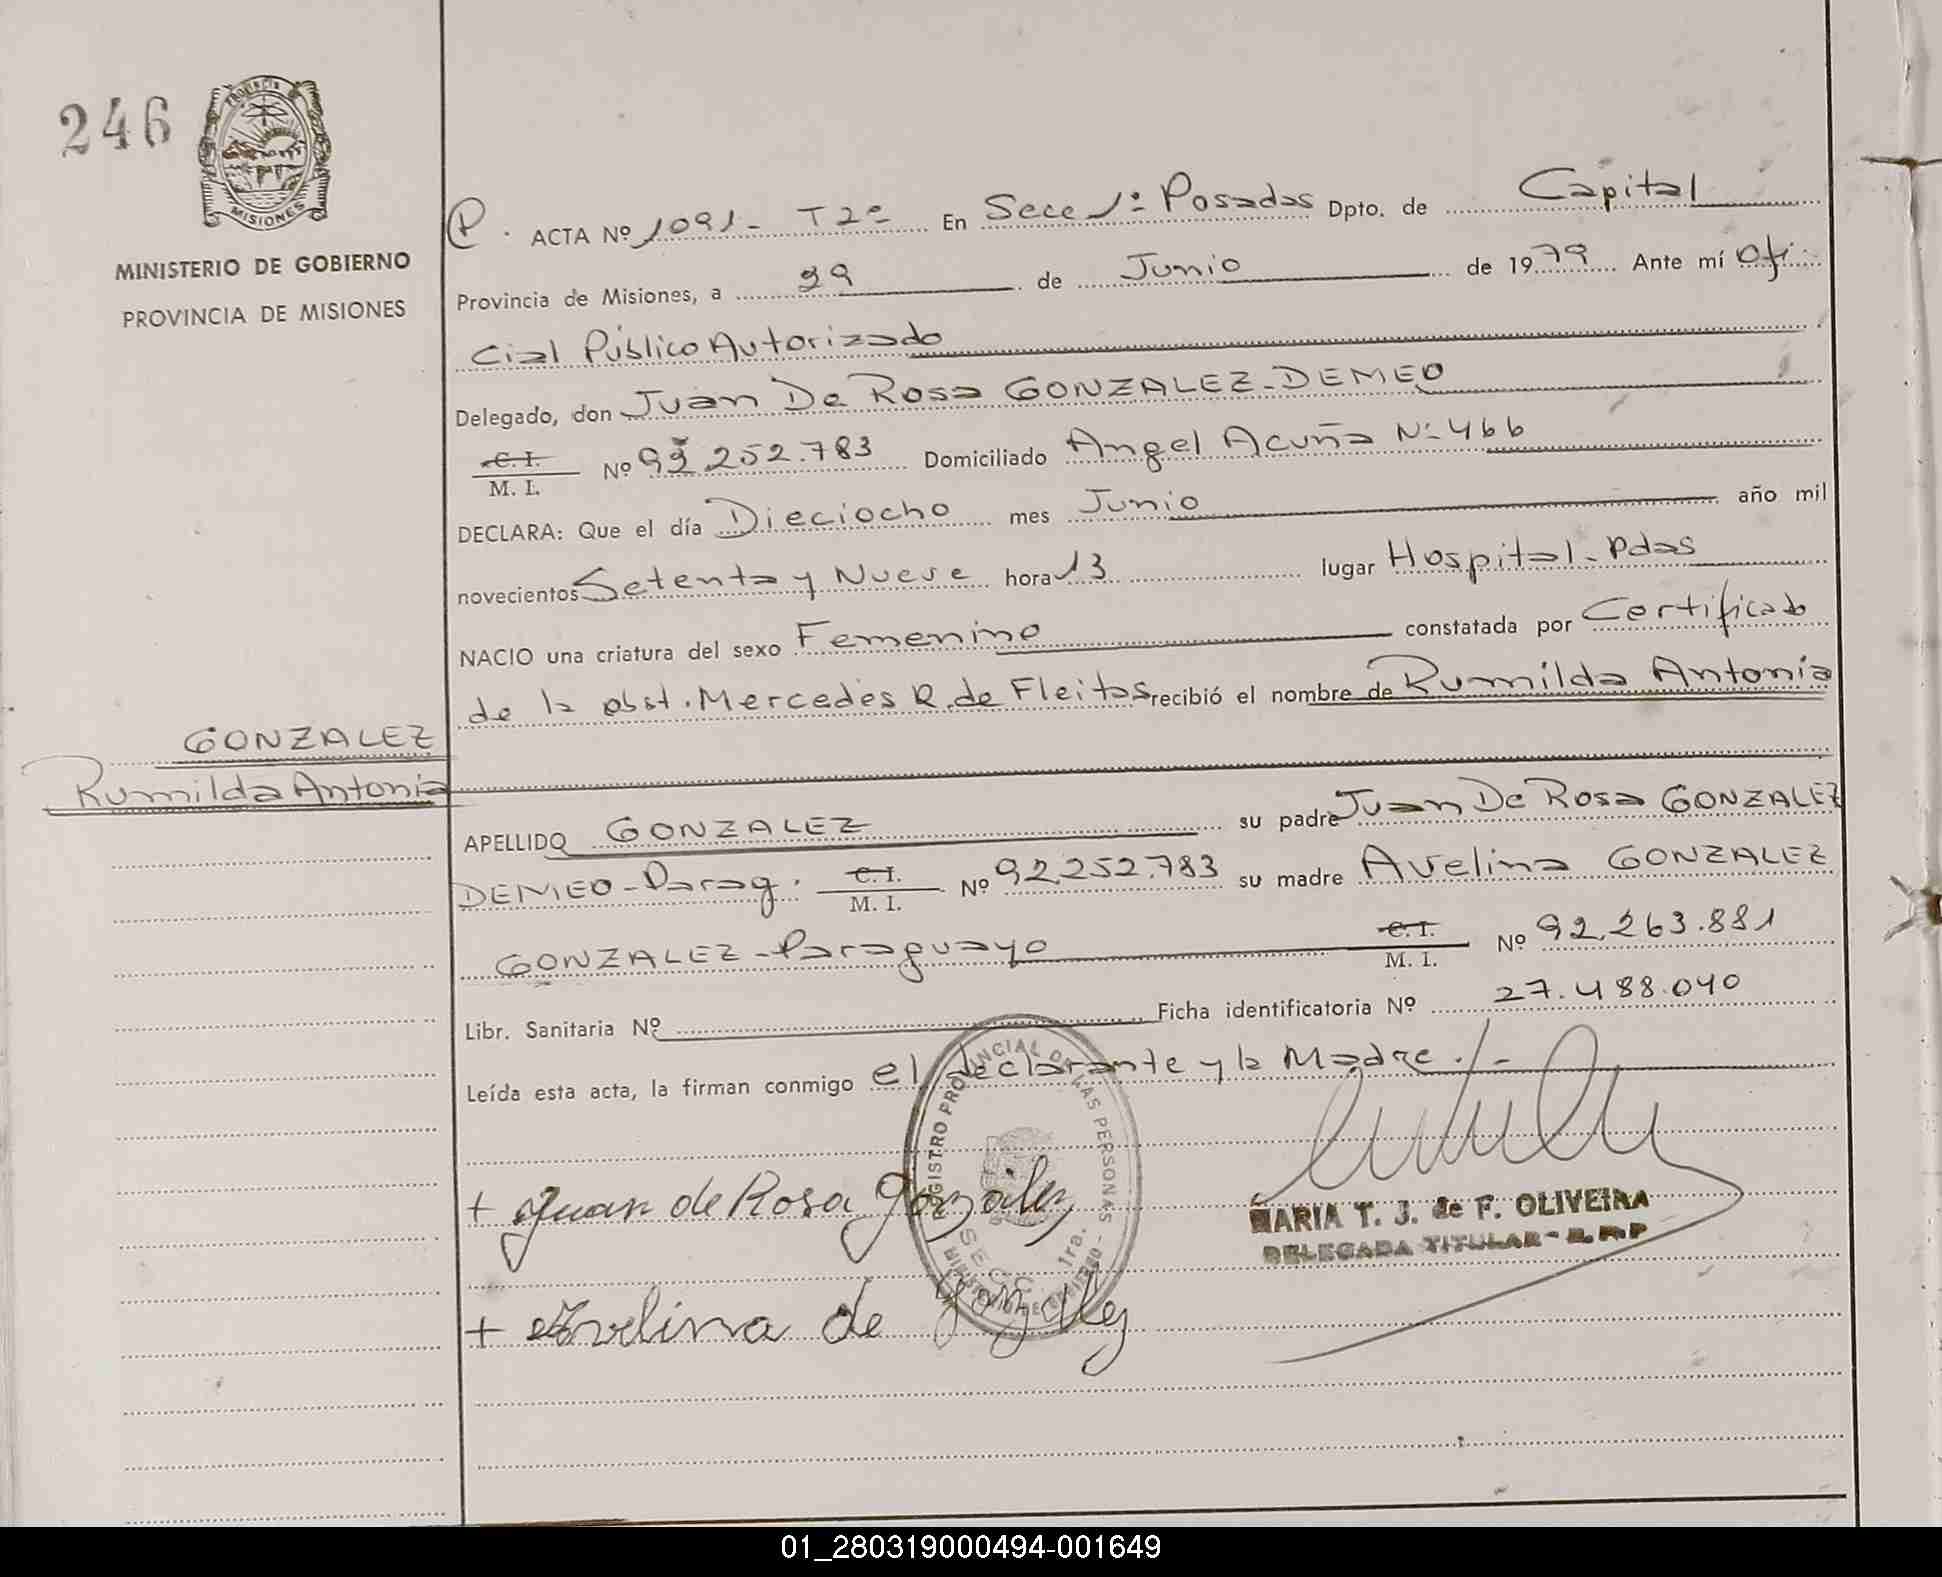 246
PROVINCIA
MISIONES
MINISTERIO DE GOBIERNO
PROVINCIA DE MISIONES
P. ACTA Nº 1091- T2º En Secc 1ª Posadas Dpto. de Capital
Provincia de Misiones, a 29 de Junio de 1979 Ante mí Ofi
cial Público Autorizado
Delegado, don Juan De Rosa GONZALEZ-DEMEO
C. I.
M. I. Nº 92.252.783 Domiciliado Angel Acuña Nº 466
DECLARA: Que el día Dieciocho mes Junio año mil
novecientos Setenta y Nueve hora 13 lugar Hospital-Pdas
NACIO una criatura del sexo Femenino constatada por Certificado
de la obst. Mercedes R. de Fleitas recibió el nombre de Rumilda Antonia
GONZALEZ
Rumilda Antonia
APELLIDO GONZALEZ su padre Juan De Rosa GONZALEZ
DEMEO-Parag. C. I.
M. I. Nº 92.252.783 su madre Avelina GONZALEZ
GONZALEZ-Paraguayo C. I.
M. I. Nº 92.263.881
Libr. Sanitaria Nº Ficha identificatoria Nº 27.488.040
Leída esta acta, la firman conmigo el declarante y la Madre./-
REGISTRO PROVINCIAL DE LAS PERSONAS
SECC 1ra.
+ Juan de Rosa Gonzalez
MARIA T. J. de F. OLIVEIRA
DELEGADA TITULAR - R.P.P
+ Avelina de Gonzalez
01_280319000494-001649